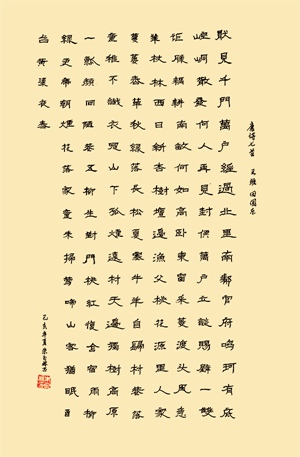 唐詩七首 王維 田園樂
猒見千門萬戶經過北里南鄰官府鳴珂有底
崆峒散髮何人再見封侯萬戶立談賜璧一雙
詎勝耦耕南畝何如高臥東窗采菱渡頭風急
策杖林西日斜杏樹壇邊漁父桃花源里人家
萋萋春草秋綠落落長松夏寒牛羊自歸村巷
童稚不識衣冠山下孤煙遠村天邊獨樹高原
一瓢顏回陋巷五柳生對門桃紅復含宿雨柳
綠更帶朝煙花落家童未掃鶯啼山客猶眠酌
谷黃粱夜舂
乙亥年夏